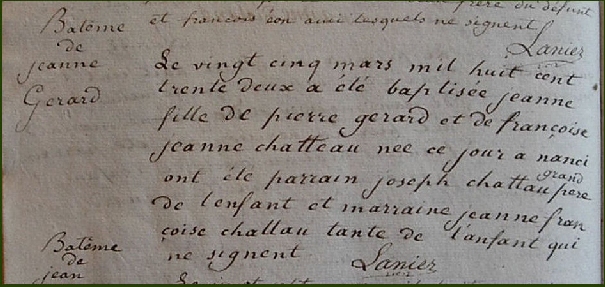 frere du defunt
et françois éon ami lesquels ne signent
Lanier
Batême
de
jeanne
Gerard
Le vingt cinq mars mil huit cent
trente deux a été baptisée jeanne
fille de pierre gerard et de françoise
jeanne chatteau nee ce jour a nanci
ont été parrain joseph chattau grand pere
de l'enfant et marraine jeanne fran
çoise challau tante de l'anfant qui
ne signent.
Lanier
Batême
de
jean